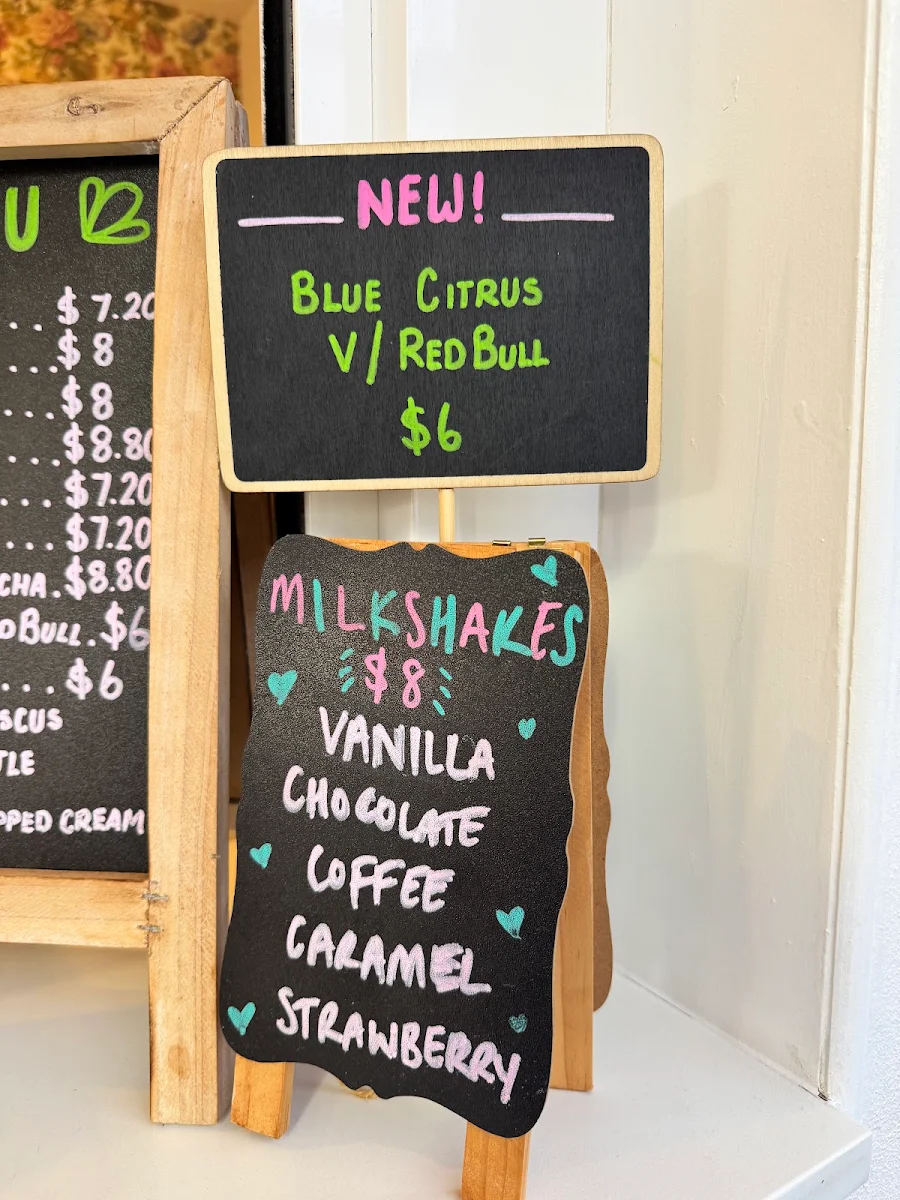 U
. . $ 7.20
. . . . $ 8
. . . $ 8
. . . . $8.80
. . . . $7.20
. . . $7.20
CHA . $8.80
DBULL . $6
. . . . $6
SCUS
TLE
PPED CREAM
NEW!
BLUE CITRUS
V/ REDBULL
$6
MILKSHAKES
$8
VANILLA
CHOCOLATE
COFFEE
CARAMEL
STRAWBERRY